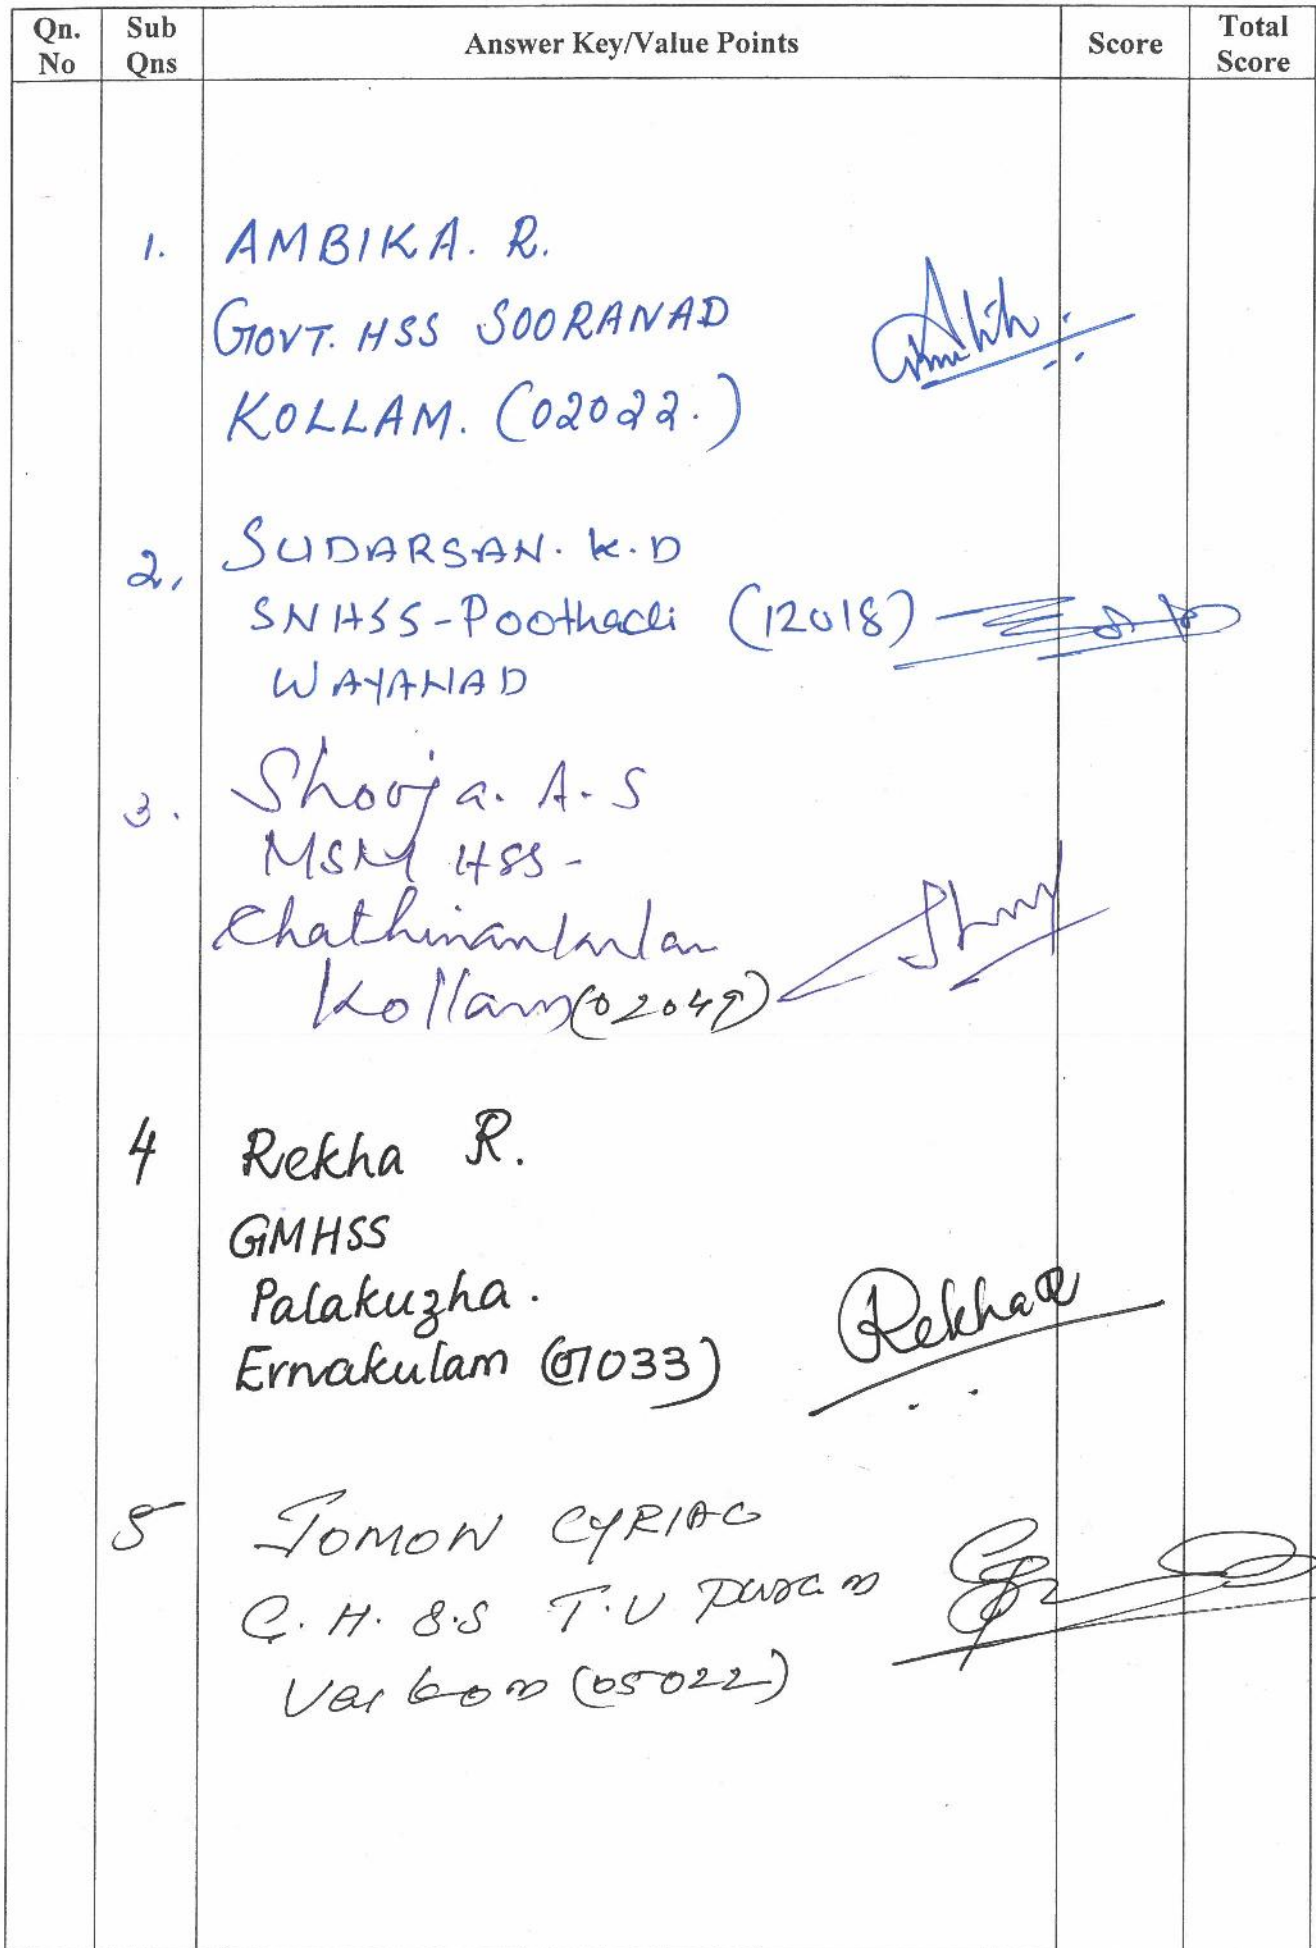 Qn. No
Sub Qns
Answer Key/Value Points
Score
Total Score
1. AMBIKA. R.
GOVT. HSS SOORANAD
KOLLAM. (02022.)
2. SUDARSAN. K. D
SNHSS-Poothadi (12018)
WAYANAD
3. Shooja. A. S
MSM HSS -
Kollam (02049)
4 Rekha R.
GMHSS
Palakuzha.
Ernakulam (07033)
Rekha R
5 JOMON CYRIAC
C. H. S.S T.V Puram
Vaikom (05022)